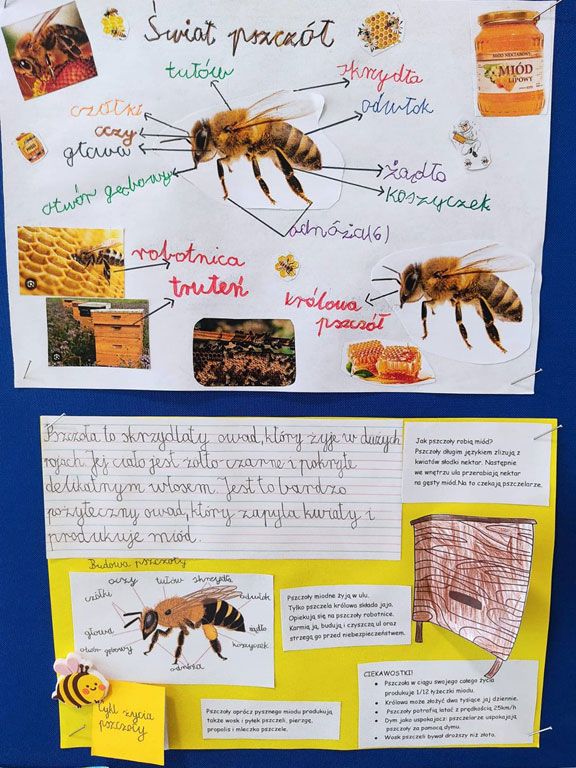 Świat pszczół
tułów
skrzydła
czółki
odwłok
oczy
głowa
żądło
otwór gębowy
koszyczek
odnóża(6)
MIÓD NEKTAROWY
MIÓD
LIPOWY
robotnica
truteń
królowa
pszczół
Pszczoła to skrzydlaty owad, który żyje w dużych
rojach. Jej ciało jest żółto-czarne i pokryte
delikatnym włosem. Jest to bardzo
pożyteczny owad, który zapyla kwiaty i
produkuje miód.
Jak pszczoły robią miód?
Pszczoły długim językiem zlizują z
kwiatów słodki nektar. Następnie
we wnętrzu ula przerabiają nektar
na gęsty miód.Na to czekają pszczelarze.
Budowa pszczoły
oczy tułów skrzydła
czółki
odwłok
głowa
żądło
otwór gębowy
koszyczek
odnóża
Pszczoły miodne żyją w ulu.
Tylko pszczela królowa składa jaja.
Opiekują się na pszczoły robotnice.
Karmią ją, budują i czyszczą ul oraz
strzegą go przed niebezpieczeństwem.
CIEKAWOSTKI!
• Pszczoła w ciągu swojego całego życia
produkuje 1/12 łyżeczki miodu.
• Królowa może złożyć dwa tysiące jaj dziennie.
• Pszczoły potrafią latać z prędkością 25km/h
• Dym jako uspokajacz: pszczelarze uspokajają
pszczoły za pomocą dymu.
• Wosk pszczeli bywał droższy niż złoto.
Cykl życia
pszczoły
Pszczoły oprócz pysznego miodu produkują
także wosk i pyłek pszczeli, pierzgę,
propolis i mleczko pszczele.